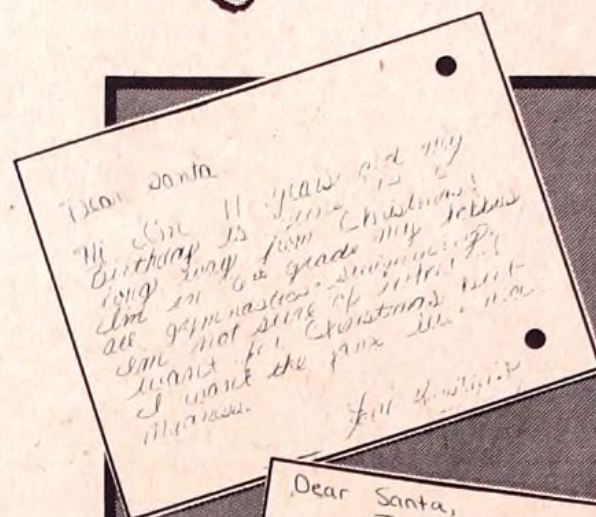 Dear Santa
Hi I'm 11 years old my
birthday is June is a
long way from Christmas!
I'm in 6 grade my hobbies
are gymnastics swimming
I'm not sure of what I
want for Christmas but
I want the
Dear Santa,